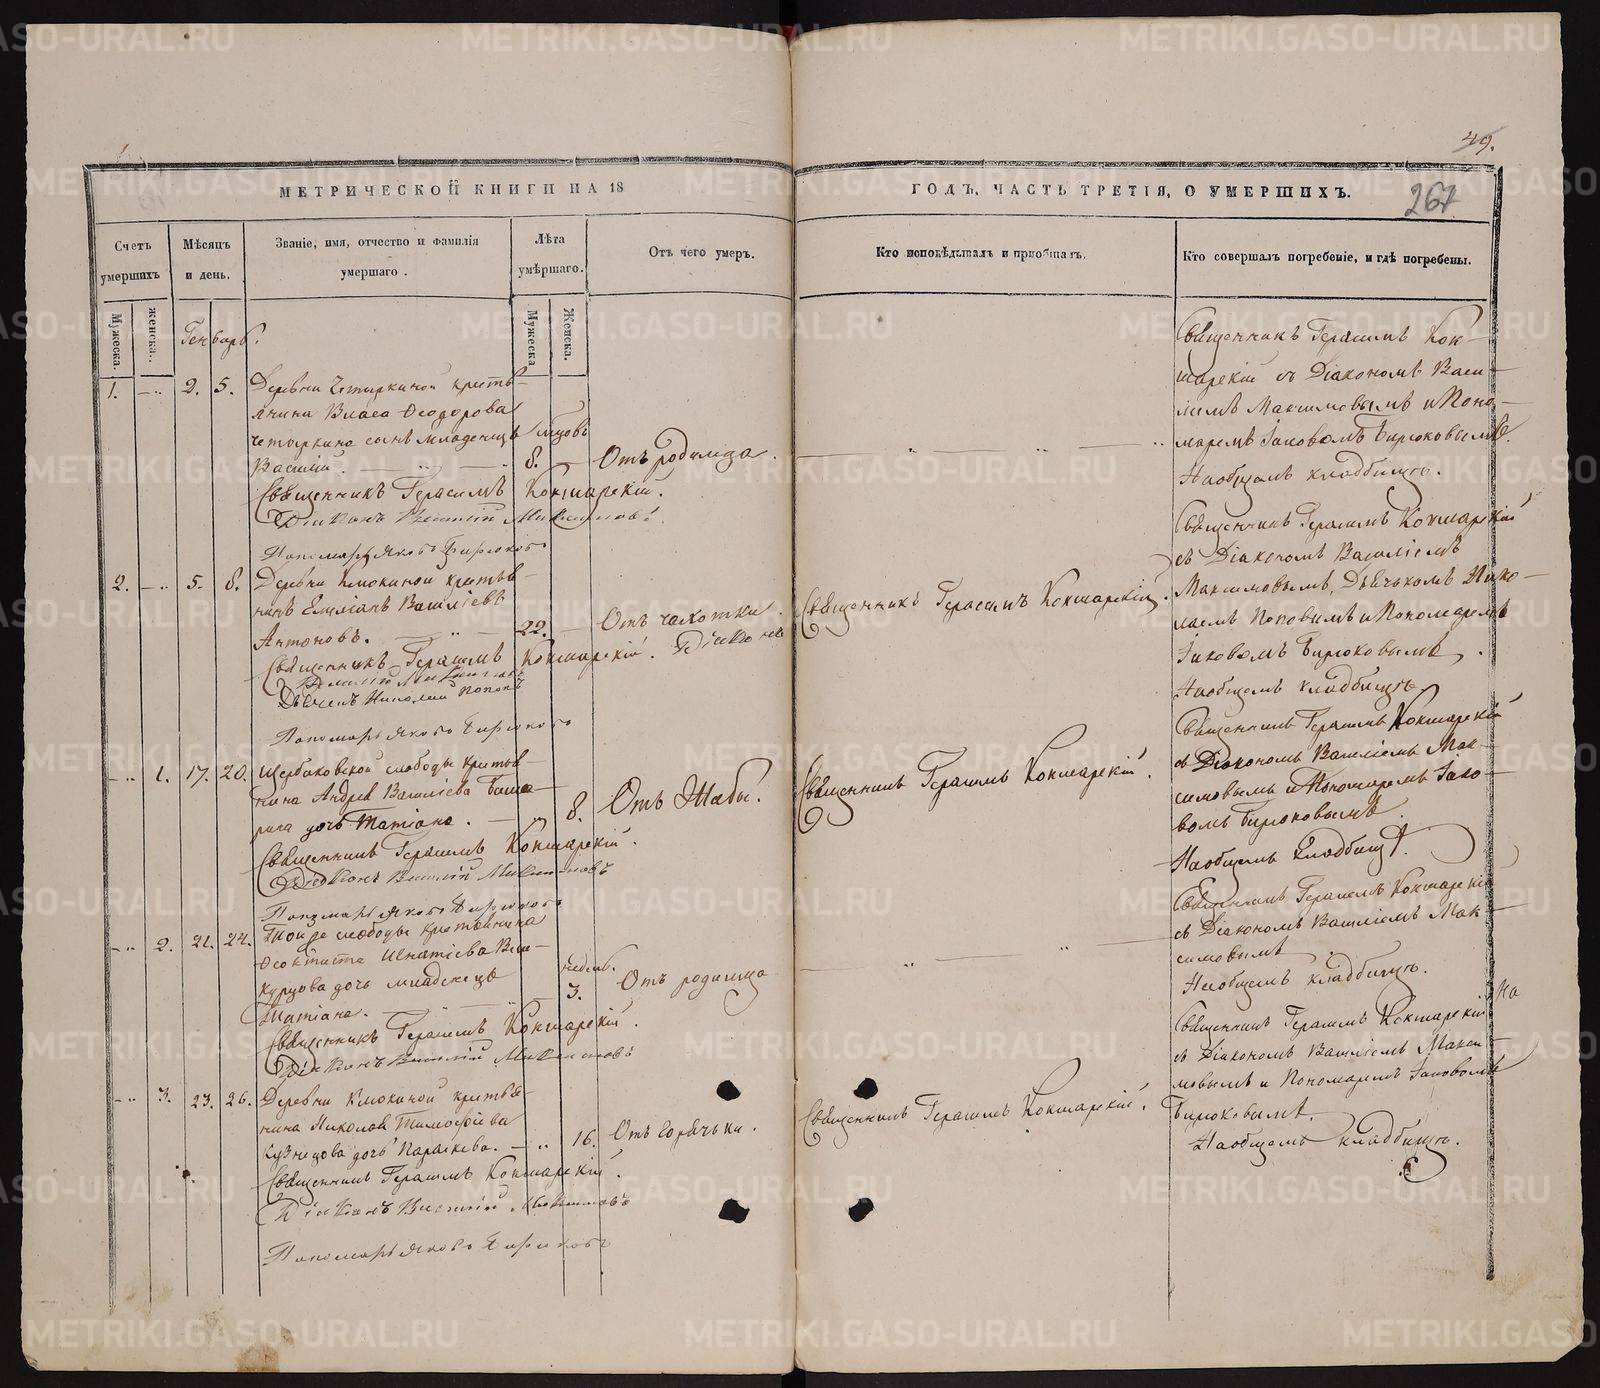 49.
267
МЕТРИЧЕСКОЙ КНИГИ НА 18
ГОДЪ, ЧАСТЬ ТРЕТІЯ, О УМЕРШИХЪ.
Счетъ умершихъ
Мѣсяцъ и день.
Званіе, имя, отчество и фамилія умершаго.
Лѣта умѣршаго.
Отъ чего умеръ.
Кто исповѣдывалъ и пріобщалъ.
Кто совершалъ погребеніе, и гдѣ погребены.
Мужеска.
женска.
Мужеска
Женска.
Генварь.
1. 2. 5. Деревни Четыркиной кресть-
янина Власа Ѳеодорова
Четыркина сынъ младенецъ мцовъ
Василій. 8. Отъ родимца.
Священникъ Герасимъ Кокшарскій.
Діаконъ Василій Максимовъ.
Пономарь Яковъ Бирюковъ
Священникъ Герасимъ Кок-
шарскій съ Діакономъ Васи-
ліемъ Максимовымъ и Поно-
маремъ Іаковомъ Бирюковымъ.
На общемъ кладбищѣ.
2. 5. 8. Деревни Клюкиной крестья-
нинъ Емиліанъ Василіевъ
Антоновъ. 22. Отъ чахотки.
Священникъ Герасимъ Кокшарскій. Діаконъ
Василій Максимовъ
Дьячекъ Николай Поповъ
Пономарь Яковъ Бирюковъ
Священникъ Герасимъ Кокшарскій.
Священникъ Герасимъ Кокшарскій
съ Діакономъ Василіемъ
Максимовымъ, Дьячькомъ Нико-
лаемъ Поповымъ и Пономаремъ
Іаковомъ Бирюковымъ.
На общемъ кладбищѣ
1. 17. 20. Щербаковской слободы крестья-
нина Андрея Василіева
дочь Татіана. 8. Отъ Жабы.
Священникъ Герасимъ Кокшарскій.
Діаконъ Василій Максимовъ
Пономарь Яковъ Бирюковъ
Священникъ Герасимъ Кокшарскій.
Священникъ Герасимъ Кокшарскій
съ Діакономъ Василіемъ Мак-
симовымъ и Пономаремъ Іако-
вомъ Бирюковымъ.
На общемъ кладбищѣ.
2. 21. 24. Той же слободы крестьянина
Ѳеоктиста Игнатіева
дочь младенецъ недель.
Татіана. 3. Отъ родимца
Священникъ Герасимъ Кокшарскій.
Діаконъ Василій Максимовъ
Священникъ Герасимъ Кокшарскій
съ Діакономъ Василіемъ Мак-
симовымъ
На общемъ кладбищѣ.
3. 23. 26. Деревни Клюкиной крестья-
нина Николая Тимофіева
Кузнецова дочь Параскева. 16. Отъ горячьки.
Священникъ Герасимъ Кокшарскій.
Діаконъ Василій Максимовъ
Пономарь Яковъ Бирюковъ
Священникъ Герасимъ Кокшарскій.
Священникъ Герасимъ Кокшарскій
съ Діакономъ Василіемъ Макси-
мовымъ и Пономаремъ Іаковомъ
Бирюковымъ.
На общемъ кладбищѣ.
METRIKI.GASO-URAL.RU